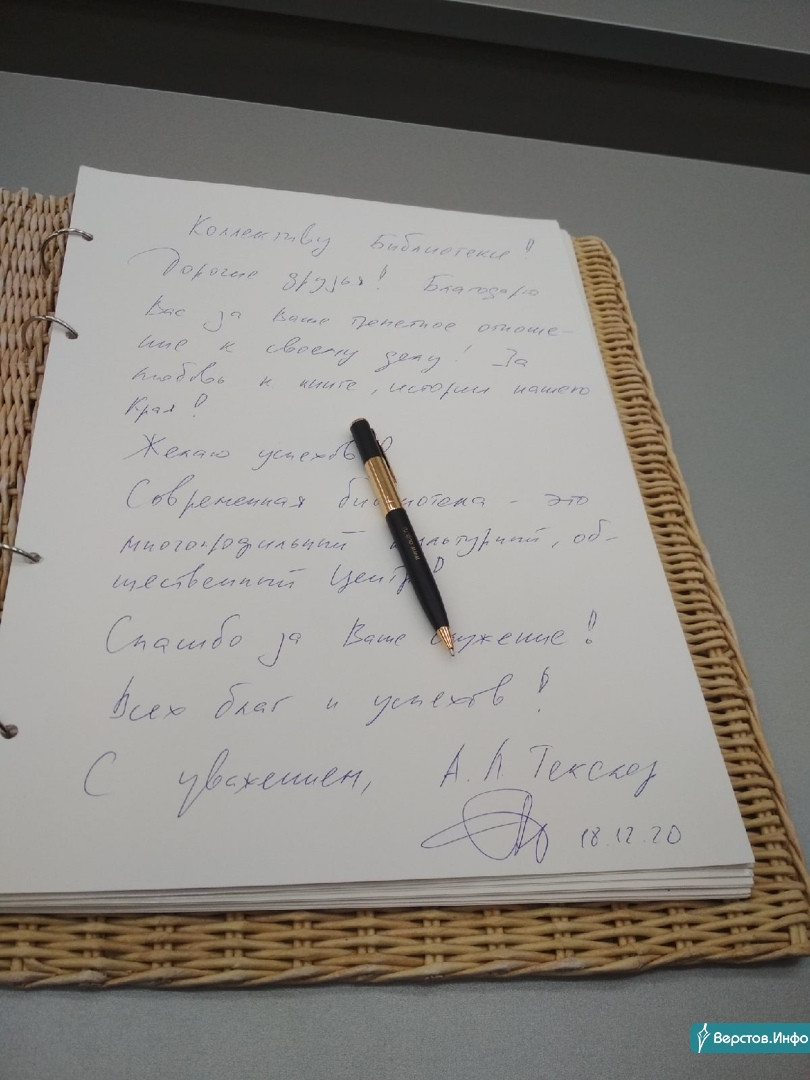 Коллективу Библиотеки!
Дорогие друзья! Благодарю
Вас за Ваше почетное отноше-
ние к своему делу! За
любовь к книге, истории нашего
Края!
Желаю успехов!
Современная библиотека - это
многопрофильный культурный, об-
щественный Центр!
Спасибо за Ваше служение!
Всех благ и успехов!
С уважением, А.Л. Текслер
18.12.20
Верстов.Инфо